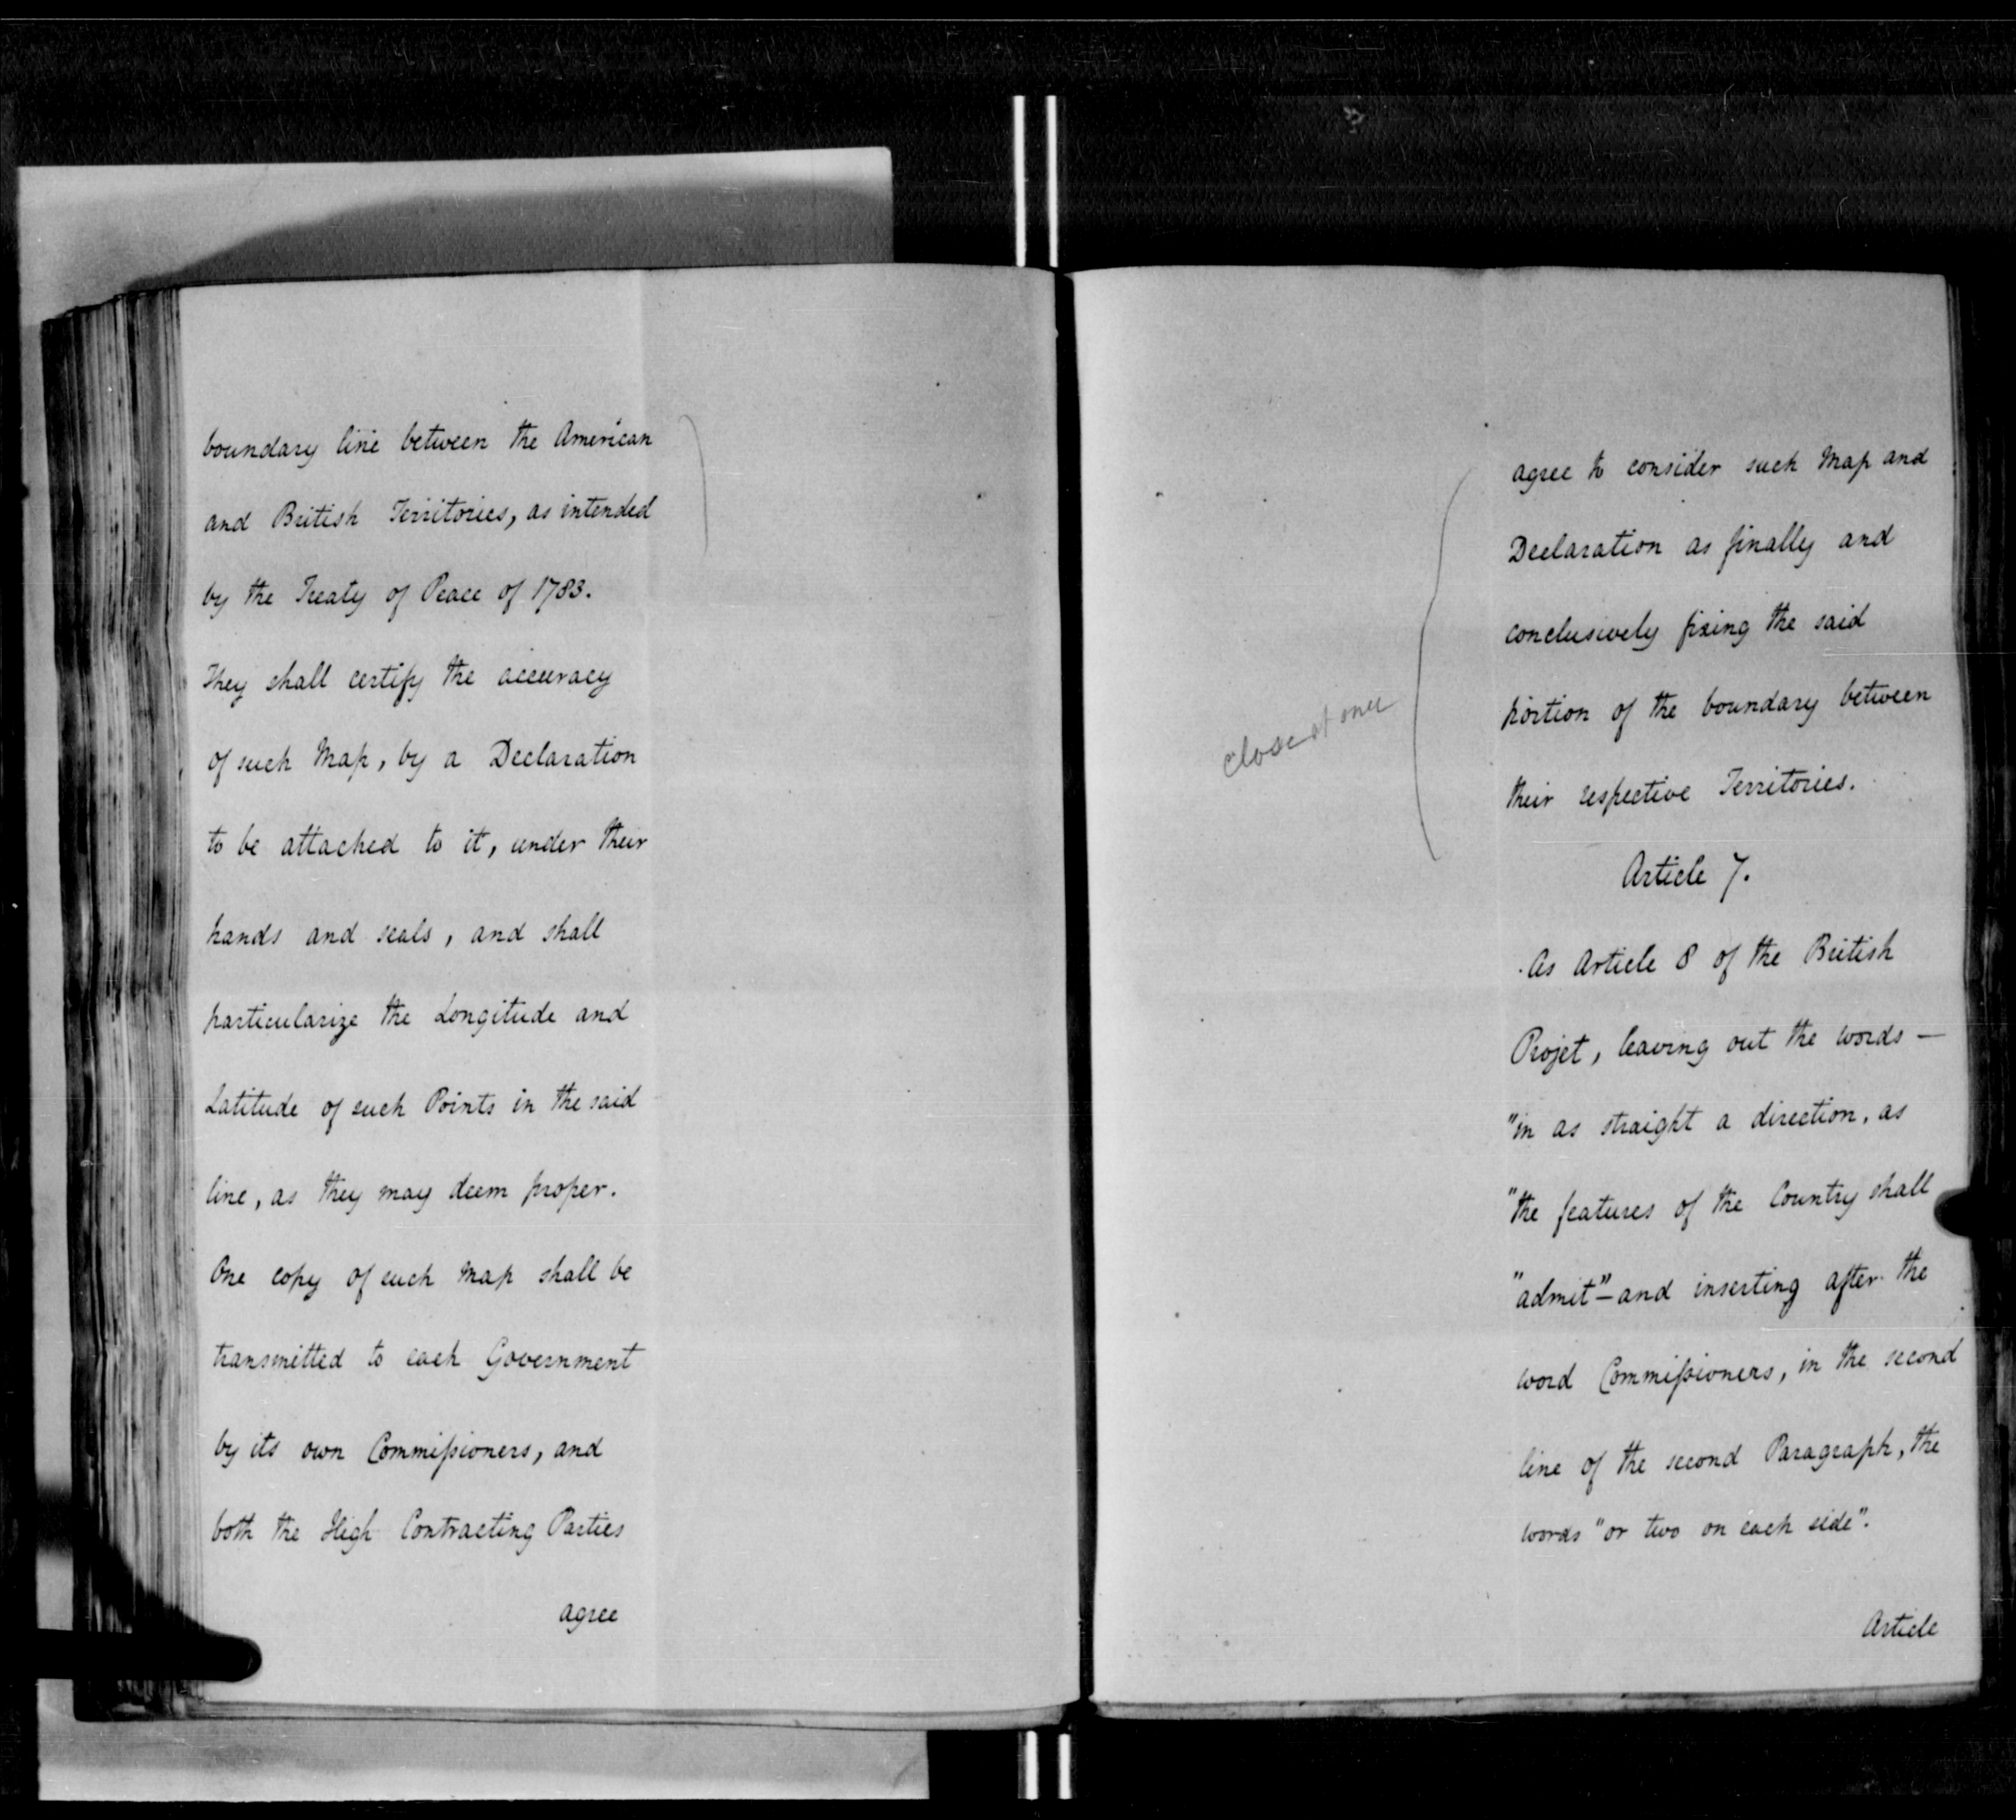 boundary line between the American
and British Territories, as intended
by the Treaty of Peace of 1783.
They shall certify the accuracy
of such Map, by a Declaration
to be attached to it, under their
hands and seals, and shall
particularize the Longitude and
Latitude of such Points in the said
line, as they may deem proper.
One copy of such Map shall be
transmitted to each Government
by its own Commissioners, and
both the High Contracting Parties
agree
agree to consider such Map and
Declaration as finally and
conclusively fixing the said
portion of the boundary between
their respective Territories.
close at once
Article 7.
As Article 8 of the British
Projet, leaving out the words —
"in as straight a direction, as
"the features of the Country shall
"admit" — and inserting after the
word Commissioners, in the second
line of the second Paragraph, the
words "or two on each side".
Article